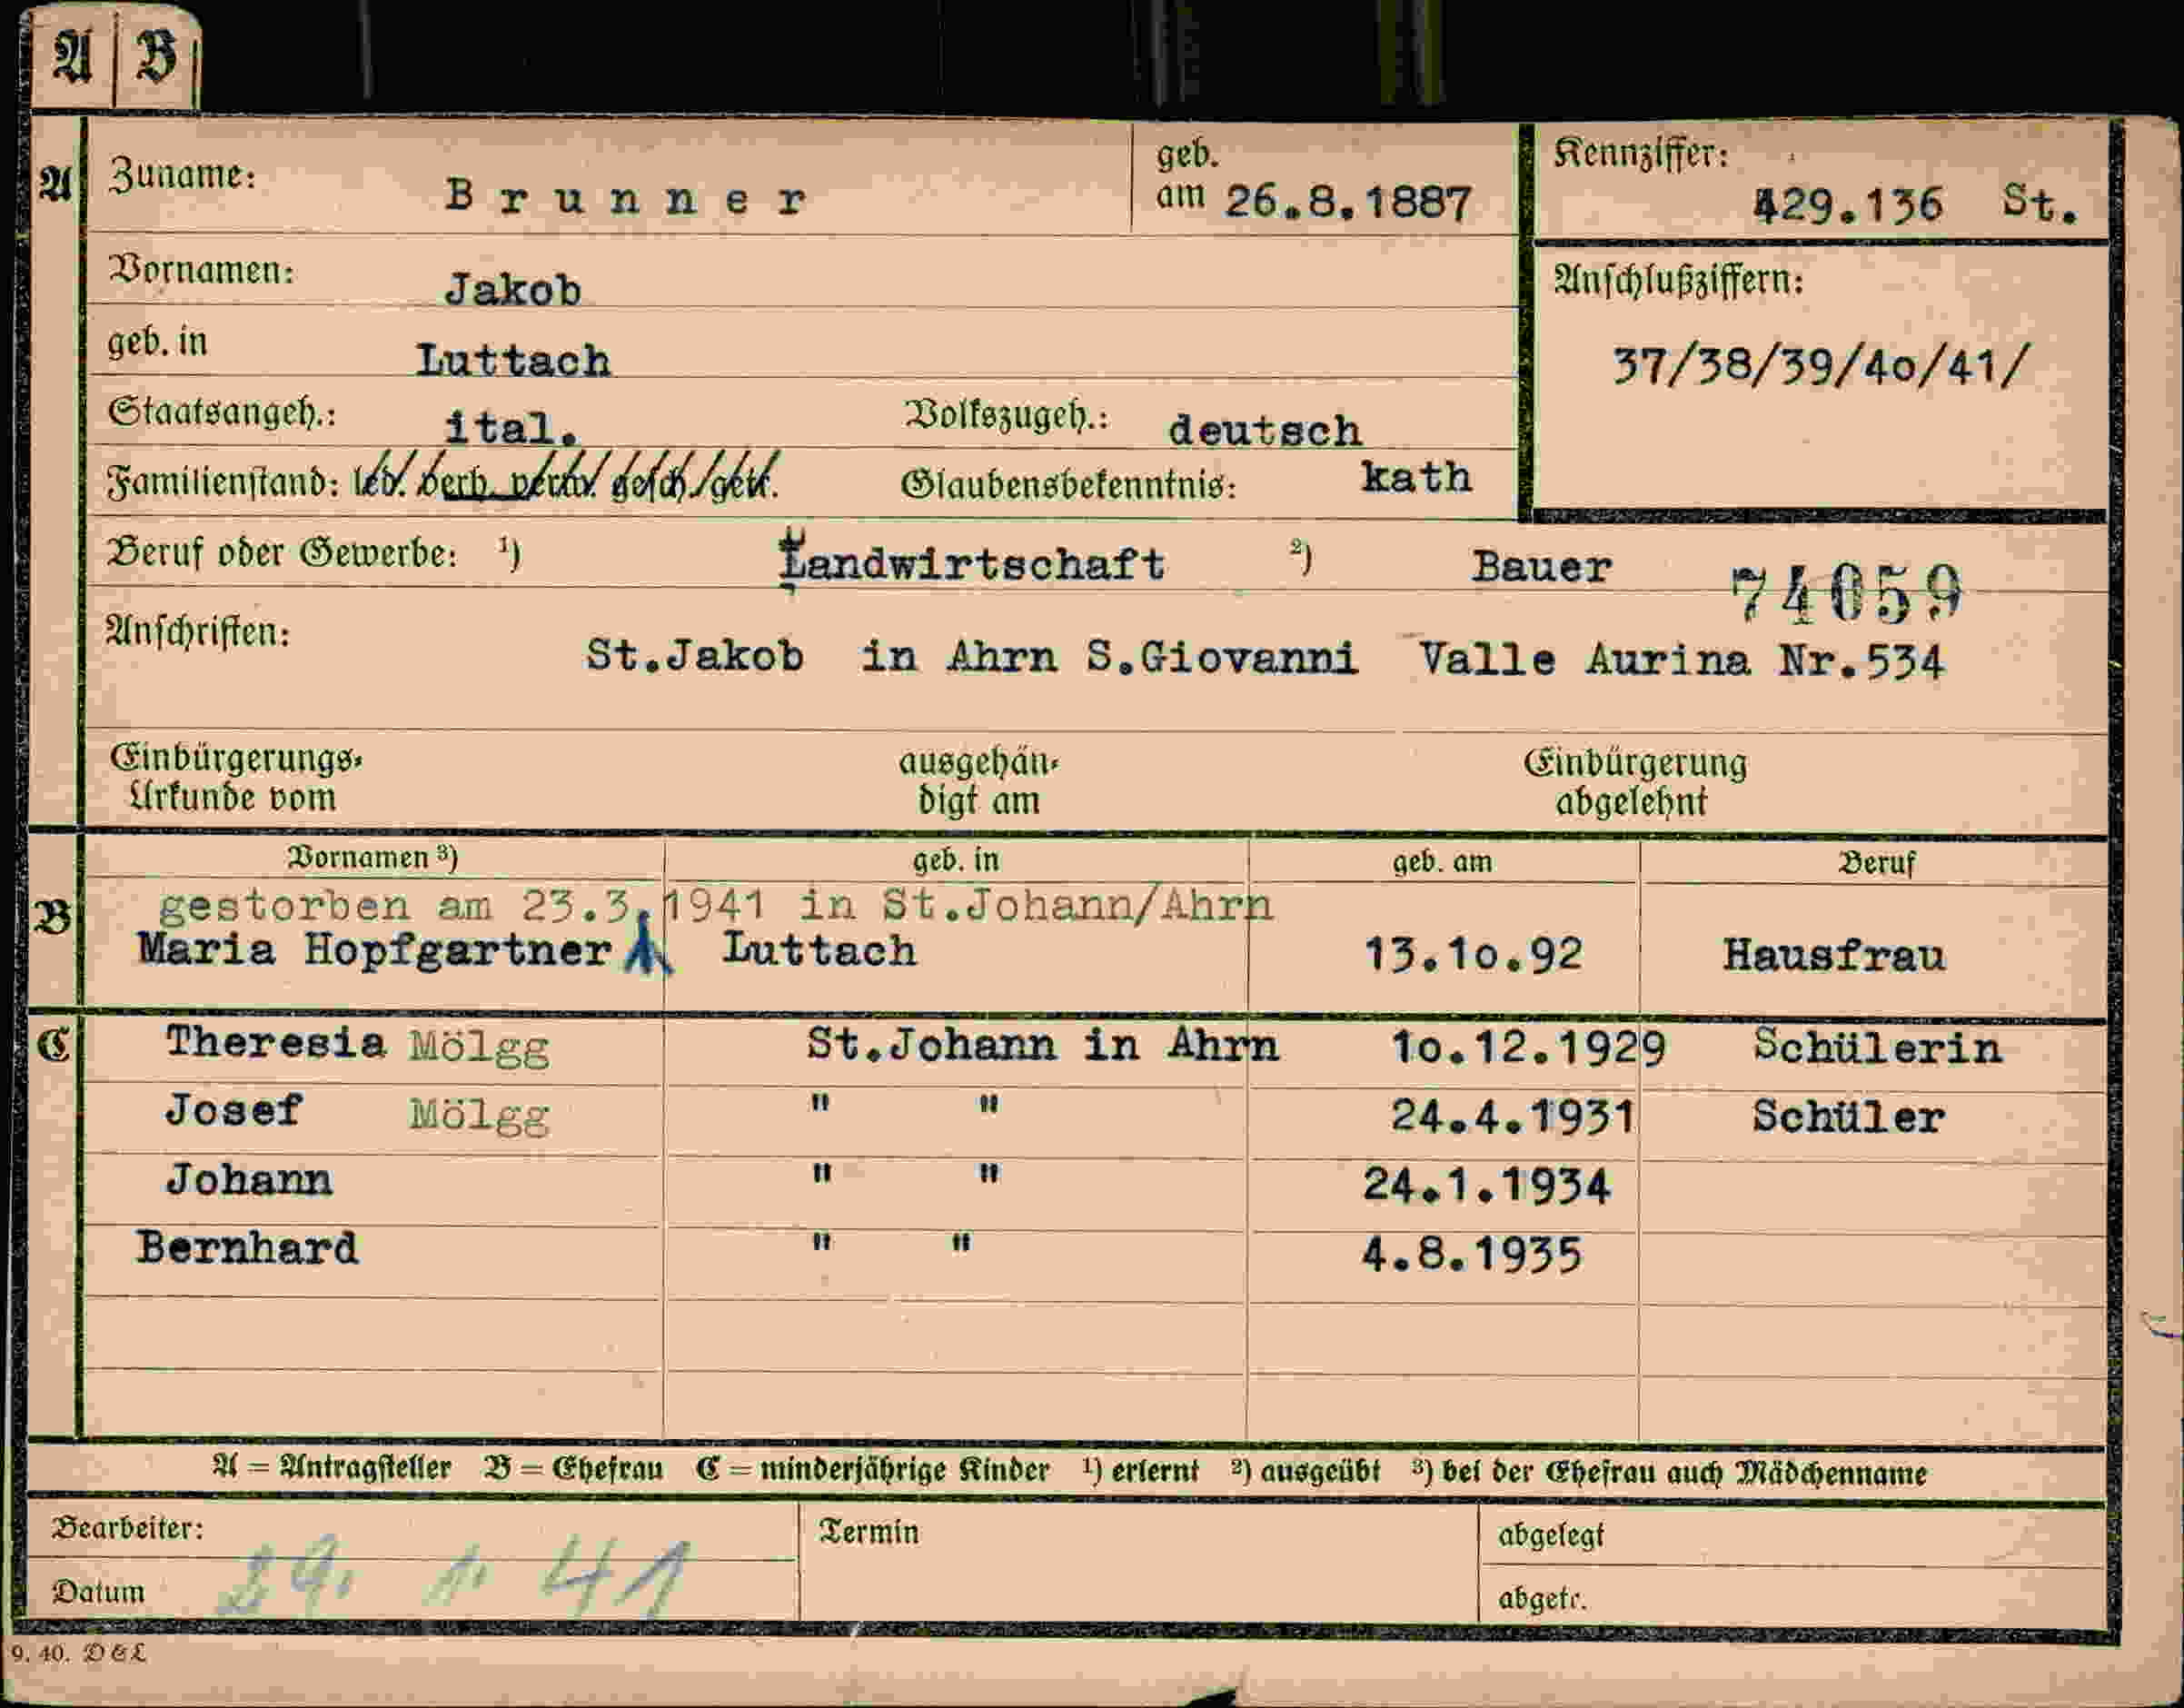 A B
A Zuname: Brunner geb. am 26.8.1887 Kennziffer: 429.136 St.
Vornamen: Jakob Anschlußziffern:
geb. in Luttach 37/38/39/4o/41/
Staatsangeh.: ital. Volkszugeh.: deutsch
Familienstand: led. verh. verw. gesch./getr. Glaubensbekenntnis: kath
Beruf oder Gewerbe: ¹) Landwirtschaft ²) Bauer 74059
Anschriften: St.Jakob in Ahrn S.Giovanni Valle Aurina Nr.534
Einbürgerungs- ausgehän- Einbürgerung
Urkunde vom digt am abgelehnt
Vornamen ³) geb. in geb. am Beruf
B gestorben am 23.3.1941 in St.Johann/Ahrn
Maria Hopfgartner Luttach 13.1o.92 Hausfrau
C Theresia Mölgg St.Johann in Ahrn 1o.12.1929 Schülerin
Josef Mölgg " " 24.4.1931 Schüler
Johann " " 24.1.1934
Bernhard " " 4.8.1935
A = Antragsteller B = Ehefrau C = minderjährige Kinder ¹) erlernt ²) ausgeübt ³) bei der Ehefrau auch Mädchenname
Bearbeiter: Termin abgelegt
Datum 29. 1. 41 abgetr.
9. 40. D & L